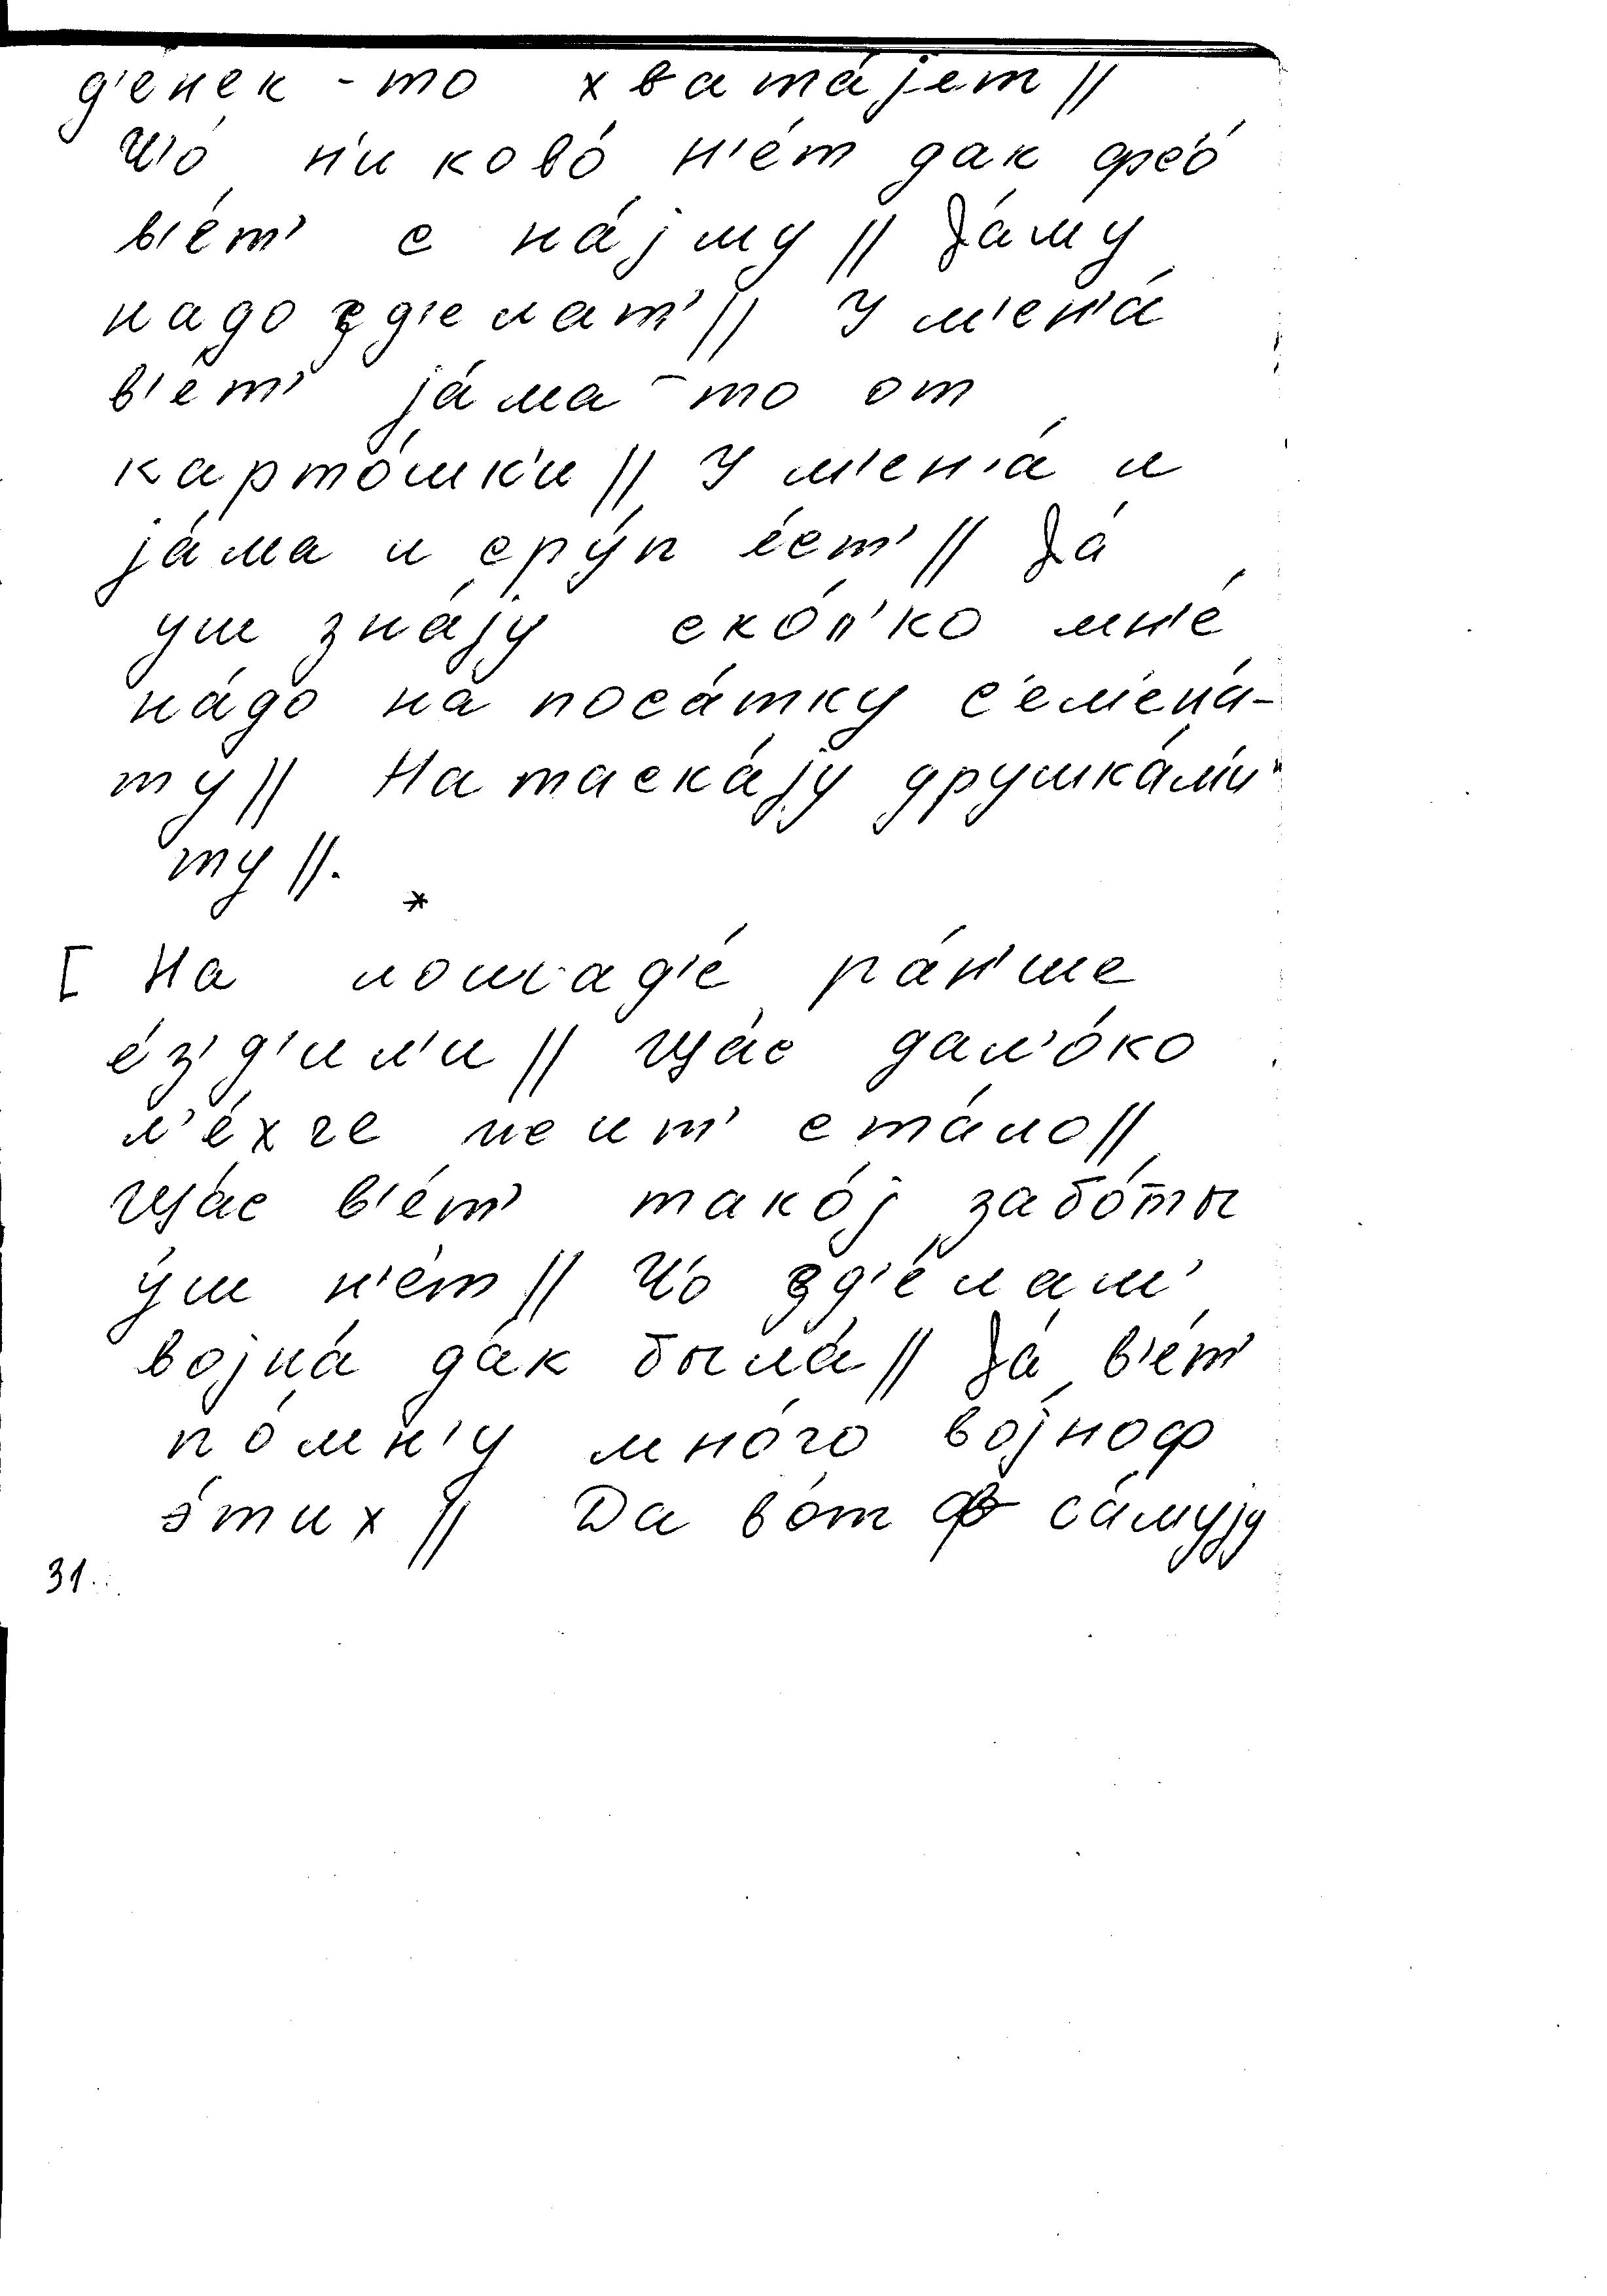 д'енек - то хвата́јет //
Ч'о́ н'и ково́ н'е́т дак фс'о́
в'е́т' с на́јму // Ја́му
надо зд'елат' // У м'ен'а́
в'е́т' ја́ма - то от
карто́шк'и // У м'ен'а́ и
ја́ма и сру́п е́ст' // Ја́
уш зна́ју ско́л'ко мн'е́
на́до на поса́тку с'ем'ена́-
ту // Натаска́ју друшка́м'и
ту //.
*
[ На лошад'е́ ра́н'ше
е́з'д'ил'и // Ща́с дал'о́ко
л'е́хче
ста́ло //
Ща́с в'е́т' тако́ј забо́ты
у́ш н'е́т // Ч'о зд'е́лаш'
војна́ да́к была́ // Ја́ в'е́т'
по́мн'у мно́го во́јноф
э́тих // Да во́т ф са́мују
31.